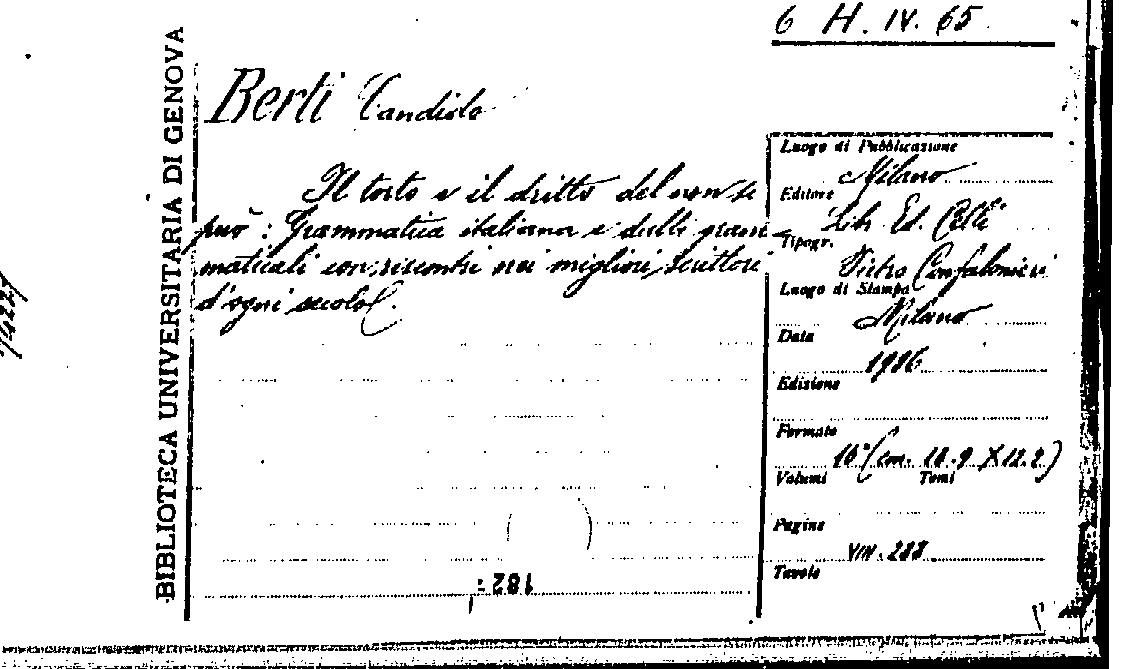 6 H. IV. 65
BIBLIOTECA UNIVERSITARIA DI GENOVA
Berti Candido
Il torto e il dritto del non si
può: Grammatica italiana e dubbi gram-
maticali con riscontri nei migliori scrittori
d'ogni secolo.
Luogo di Pubblicazione
Milano
Editore
Lib. Ed.
Tipogr.
Pietro Confalonieri
Luogo di Stampa
Milano
Data
Edizione
Formato
16° (cm. 18.9 X 12.2)
Volumi Tomi
Pagine
VIII. 288
Tavole
182